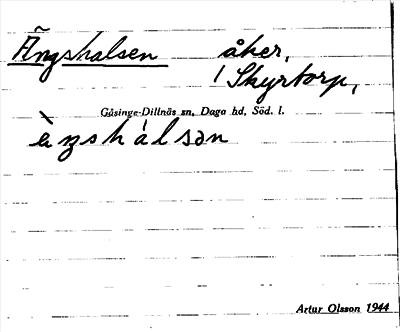 Ängshalsen åker,
/ Skyrtorp,
Gåsinge-Dillnäs sn, Daga hd, Söd. l.
ὲŋshálsən
Artur Olsson 1944